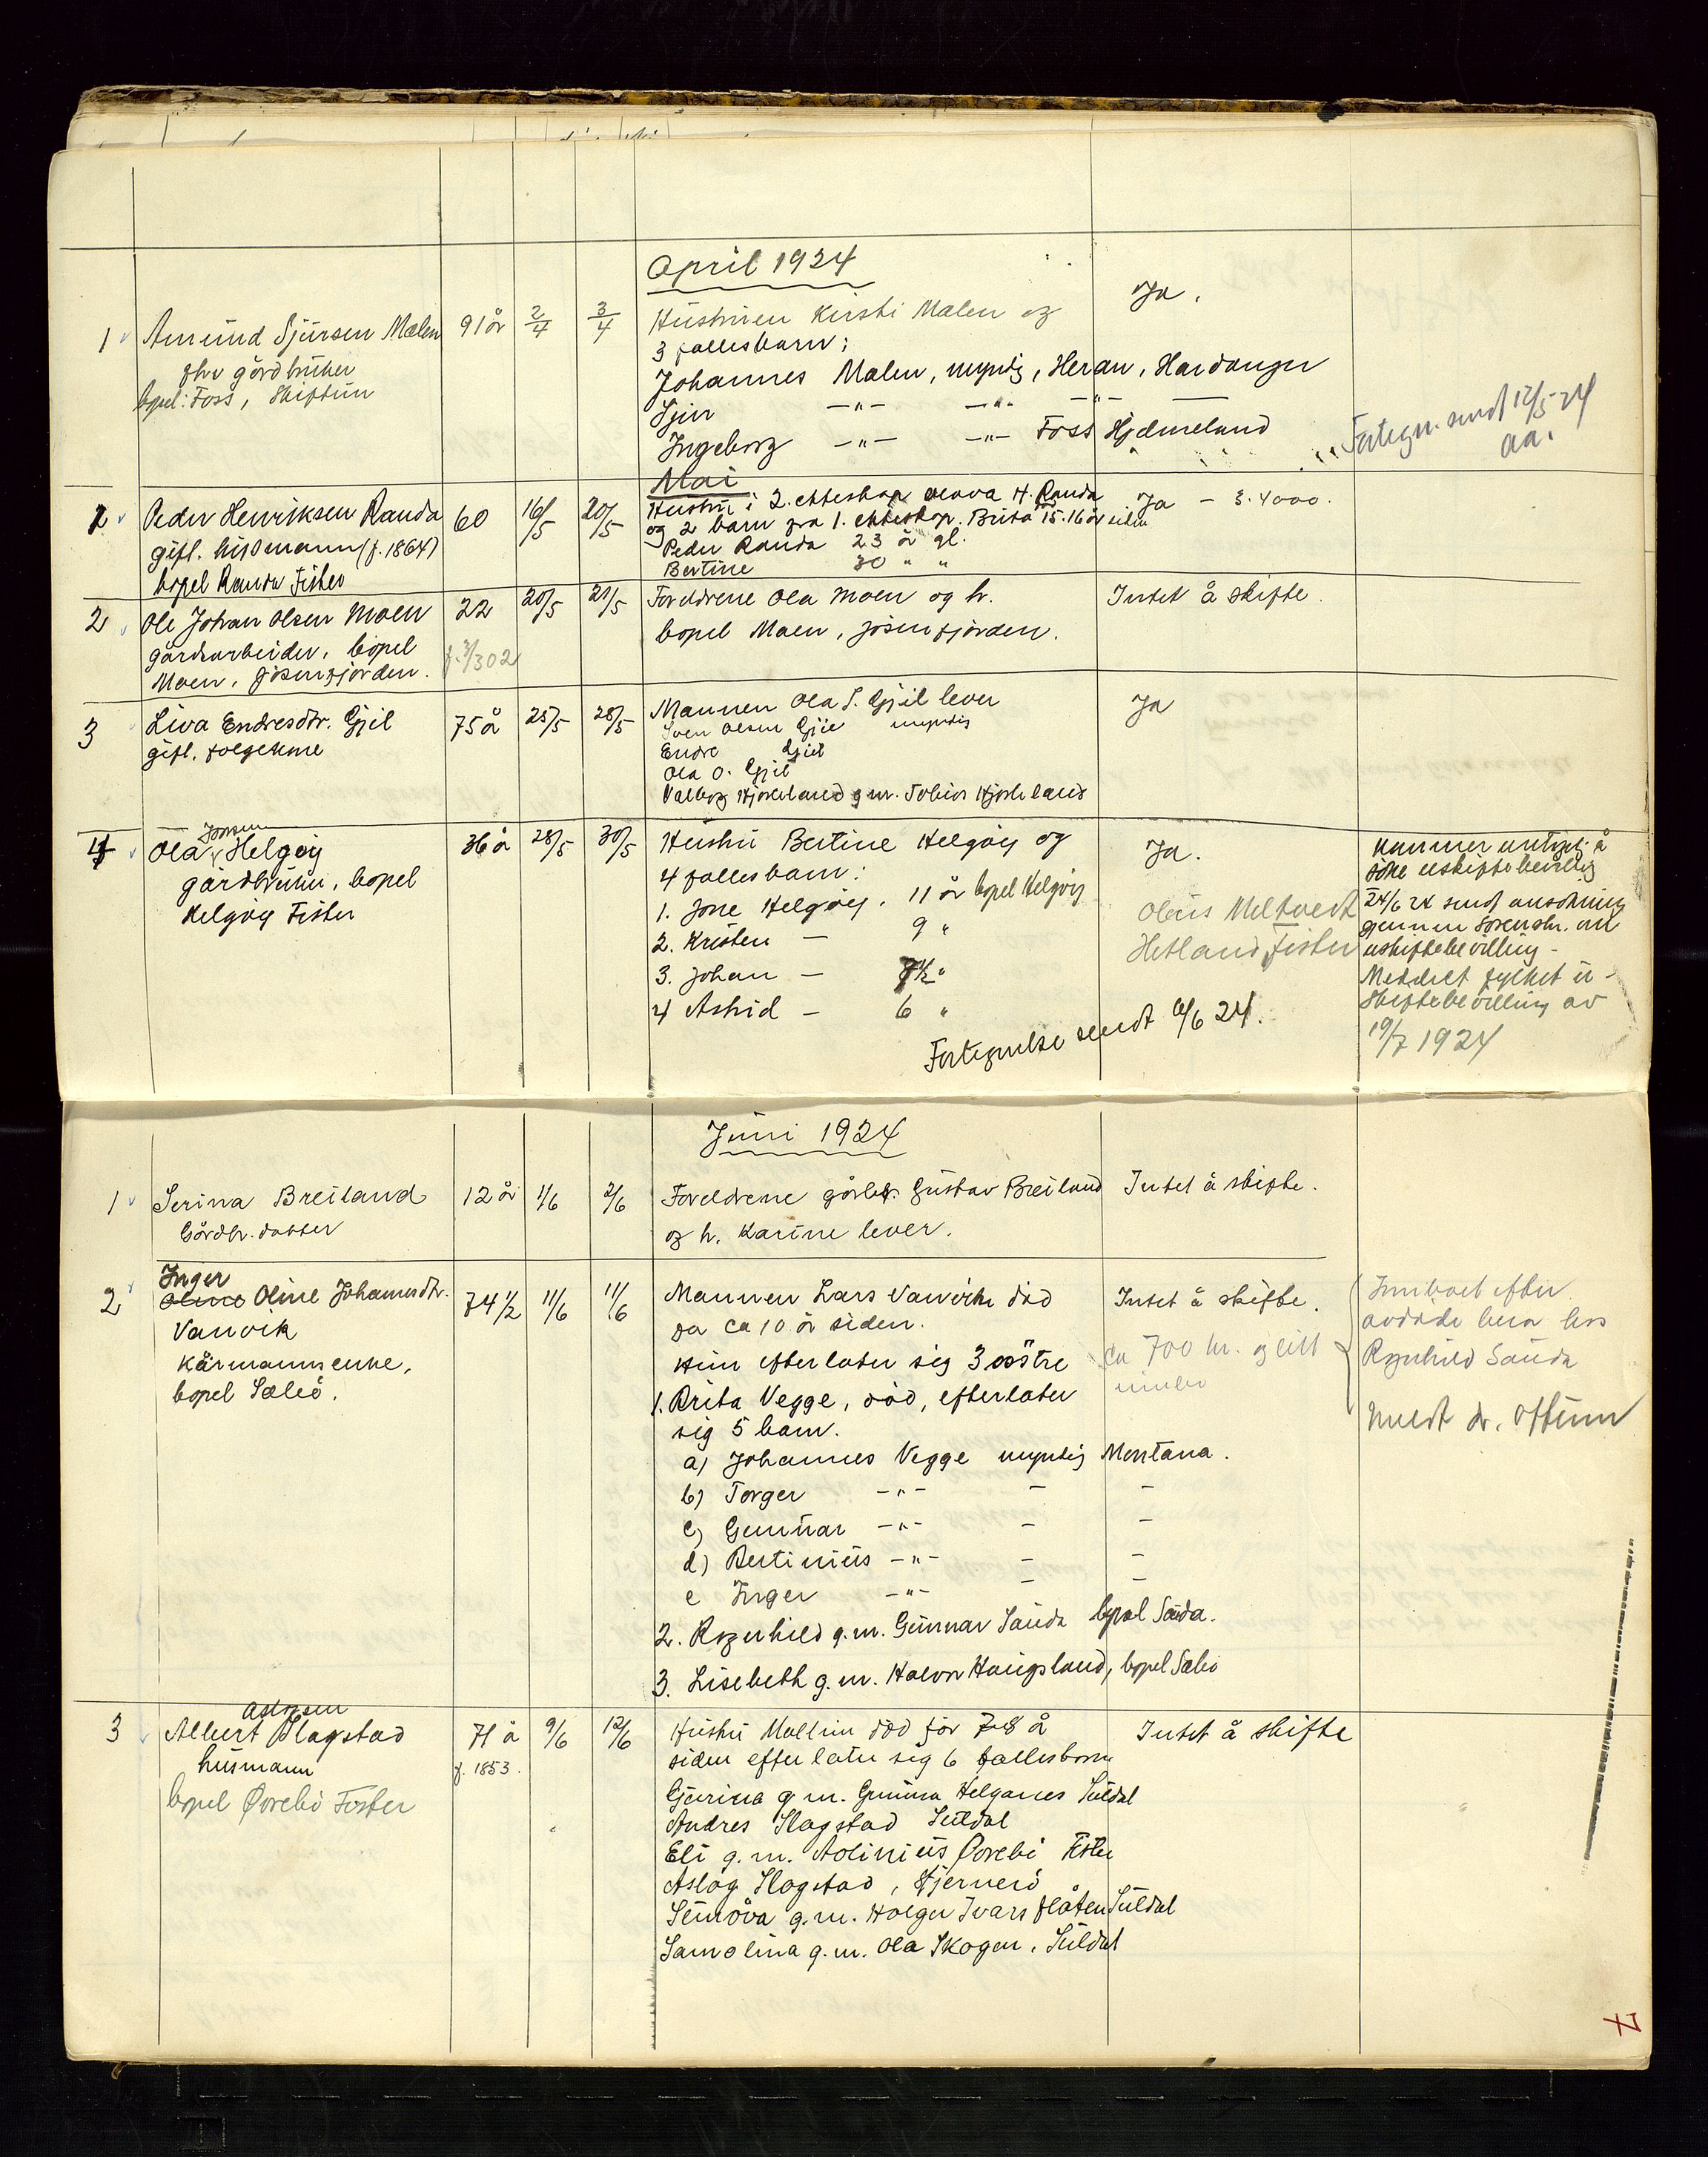 April 1924
1 Amund Sjursen Mælen 91 år 2/4 3/4 Hustruen Kirsti Mælen og Ja.
fhv gårdbruker 3 fellesbarn:
bopel: Foss, Skiftun Johannes Mælen, myndig, Heran, Hardanger
Sjur —"— —"— —"—
Ingeborg —"— —"— Foss Hjelmeland
Fortegn. sendt 12/5-24
aa.
Mai
1 Peder Henriksen Randa 60 16/5 20/5 Hustru i 2. ekteskap Olava H. Randa Ja - 3.4000.
gift. husmann (f. 1864) og 2 barn fra 1. ekteskap. Brita død 15.16 år siden
bopel Randa Fister Peder Randa 23 år gl.
Bertine 30 " "
2 Ole Johan Olsen Moen 22 20/5 21/5 Foreldrene Ola Moen og h. Intet å skifte.
gårdsarbeider, bopel f. 3/302 bopel Moen, Jøsenfjorden.
Moen, Jøsenfjorden.
3 Liva Endresdtr. Gjil 75 å 25/5 28/5 Mannen Ola S. Gjil lever Ja
gift. folgekone Sven Olsen Gjil myndig
Endre Gjil
Ola O. Gjil
Valborg Hjorteland g.m. Tobias Hjorteland
4 Ola Jonsen Helgøy 36 å 28/5 30/5 Hustru Bertine Helgøy og Ja.
gårdbruker, bopel 4 fellesbarn:
Helgøy Fister 1. Jone Helgøy, 11 år bopel Helgøy
2. Kristen — 9 "
3. Johan — 7½ "
4 Astrid — 6 "
Fortegnelse sendt 6/6 24.
Olaus Meltveit
Hetland, Fister
Kommer antagel. å
søke uskiftebevilling
24/6 24 sendt ansøkning
gjennem Sorenskr. om
uskiftebevilling -
Meddelt fylket u-
skiftebevilling av
19/7 1924
Juni 1924
1 Serina Breiland 12 år 1/6 2/6 Foreldrene gårbr. Gustav Breiland Intet å skifte.
Gårdbr. datter og h. Karine lever.
Inger
2 Oline Oline Johannesdtr. 74½ 11/6 11/6 Mannen Lars Vanvik død Intet å skifte.
Vanvik da ca 10 år siden.
kårmannsenke, Hun efterlater sig 3 søstre
bopel Sæbø. 1. Brita Vegge, død, efterlater
sig 5 barn.
ca 700 kr. og litt
innbo
Innboet efter
avdøde bera hos
Ragnhild Sauda
meldt dr. Oftum
a) Johannes Vegge myndig Montana.
b) Torger —"— — —
c) Gunnar —"— — —
d) Bertinius —"— — —
e Inger —"— — —
2. Ragnhild g.m. Gunnar Sauda bopel Sauda.
3. Lisebeth g.m. Halvor Haugsland, bopel Sæbø
Aslaksen
3 Albert Slagstad 71 å 9/6 12/6 Hustru Mallin død for 7-8 å Intet å skifte
husmann f. 1853. siden efterlater sig 6 fellesbarn
bopel Øvrebø Fister Gjurina g.m. Gunnar Helganes Suldal
Andres Slagstad Suldal
Eli g.m. Adinius Øvrebø Fister
Aslog Slagstad, Stjernerø
Sunnøva g.m. Holger Ivars flåten Suldal
Samolina g.m. Ola Skogen, Suldal
7